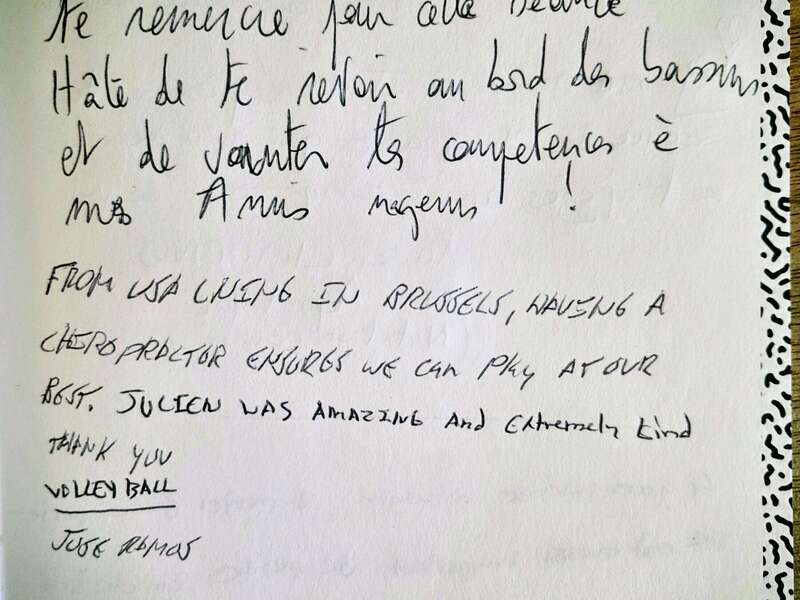 te remercie pour cette séance
Hâte de te revoir au bord des bassins
et de vanter tes compétences à
mes Amis nageurs !
FROM USA LIVING IN BRUSSELS, HAVING A
CHIROPRACTOR ENSURES WE CAN PLAY AT OUR
BEST. JULIEN WAS AMAZING And Extremely kind
THANK YOU
VOLLEY BALL
JOSE RAMOS